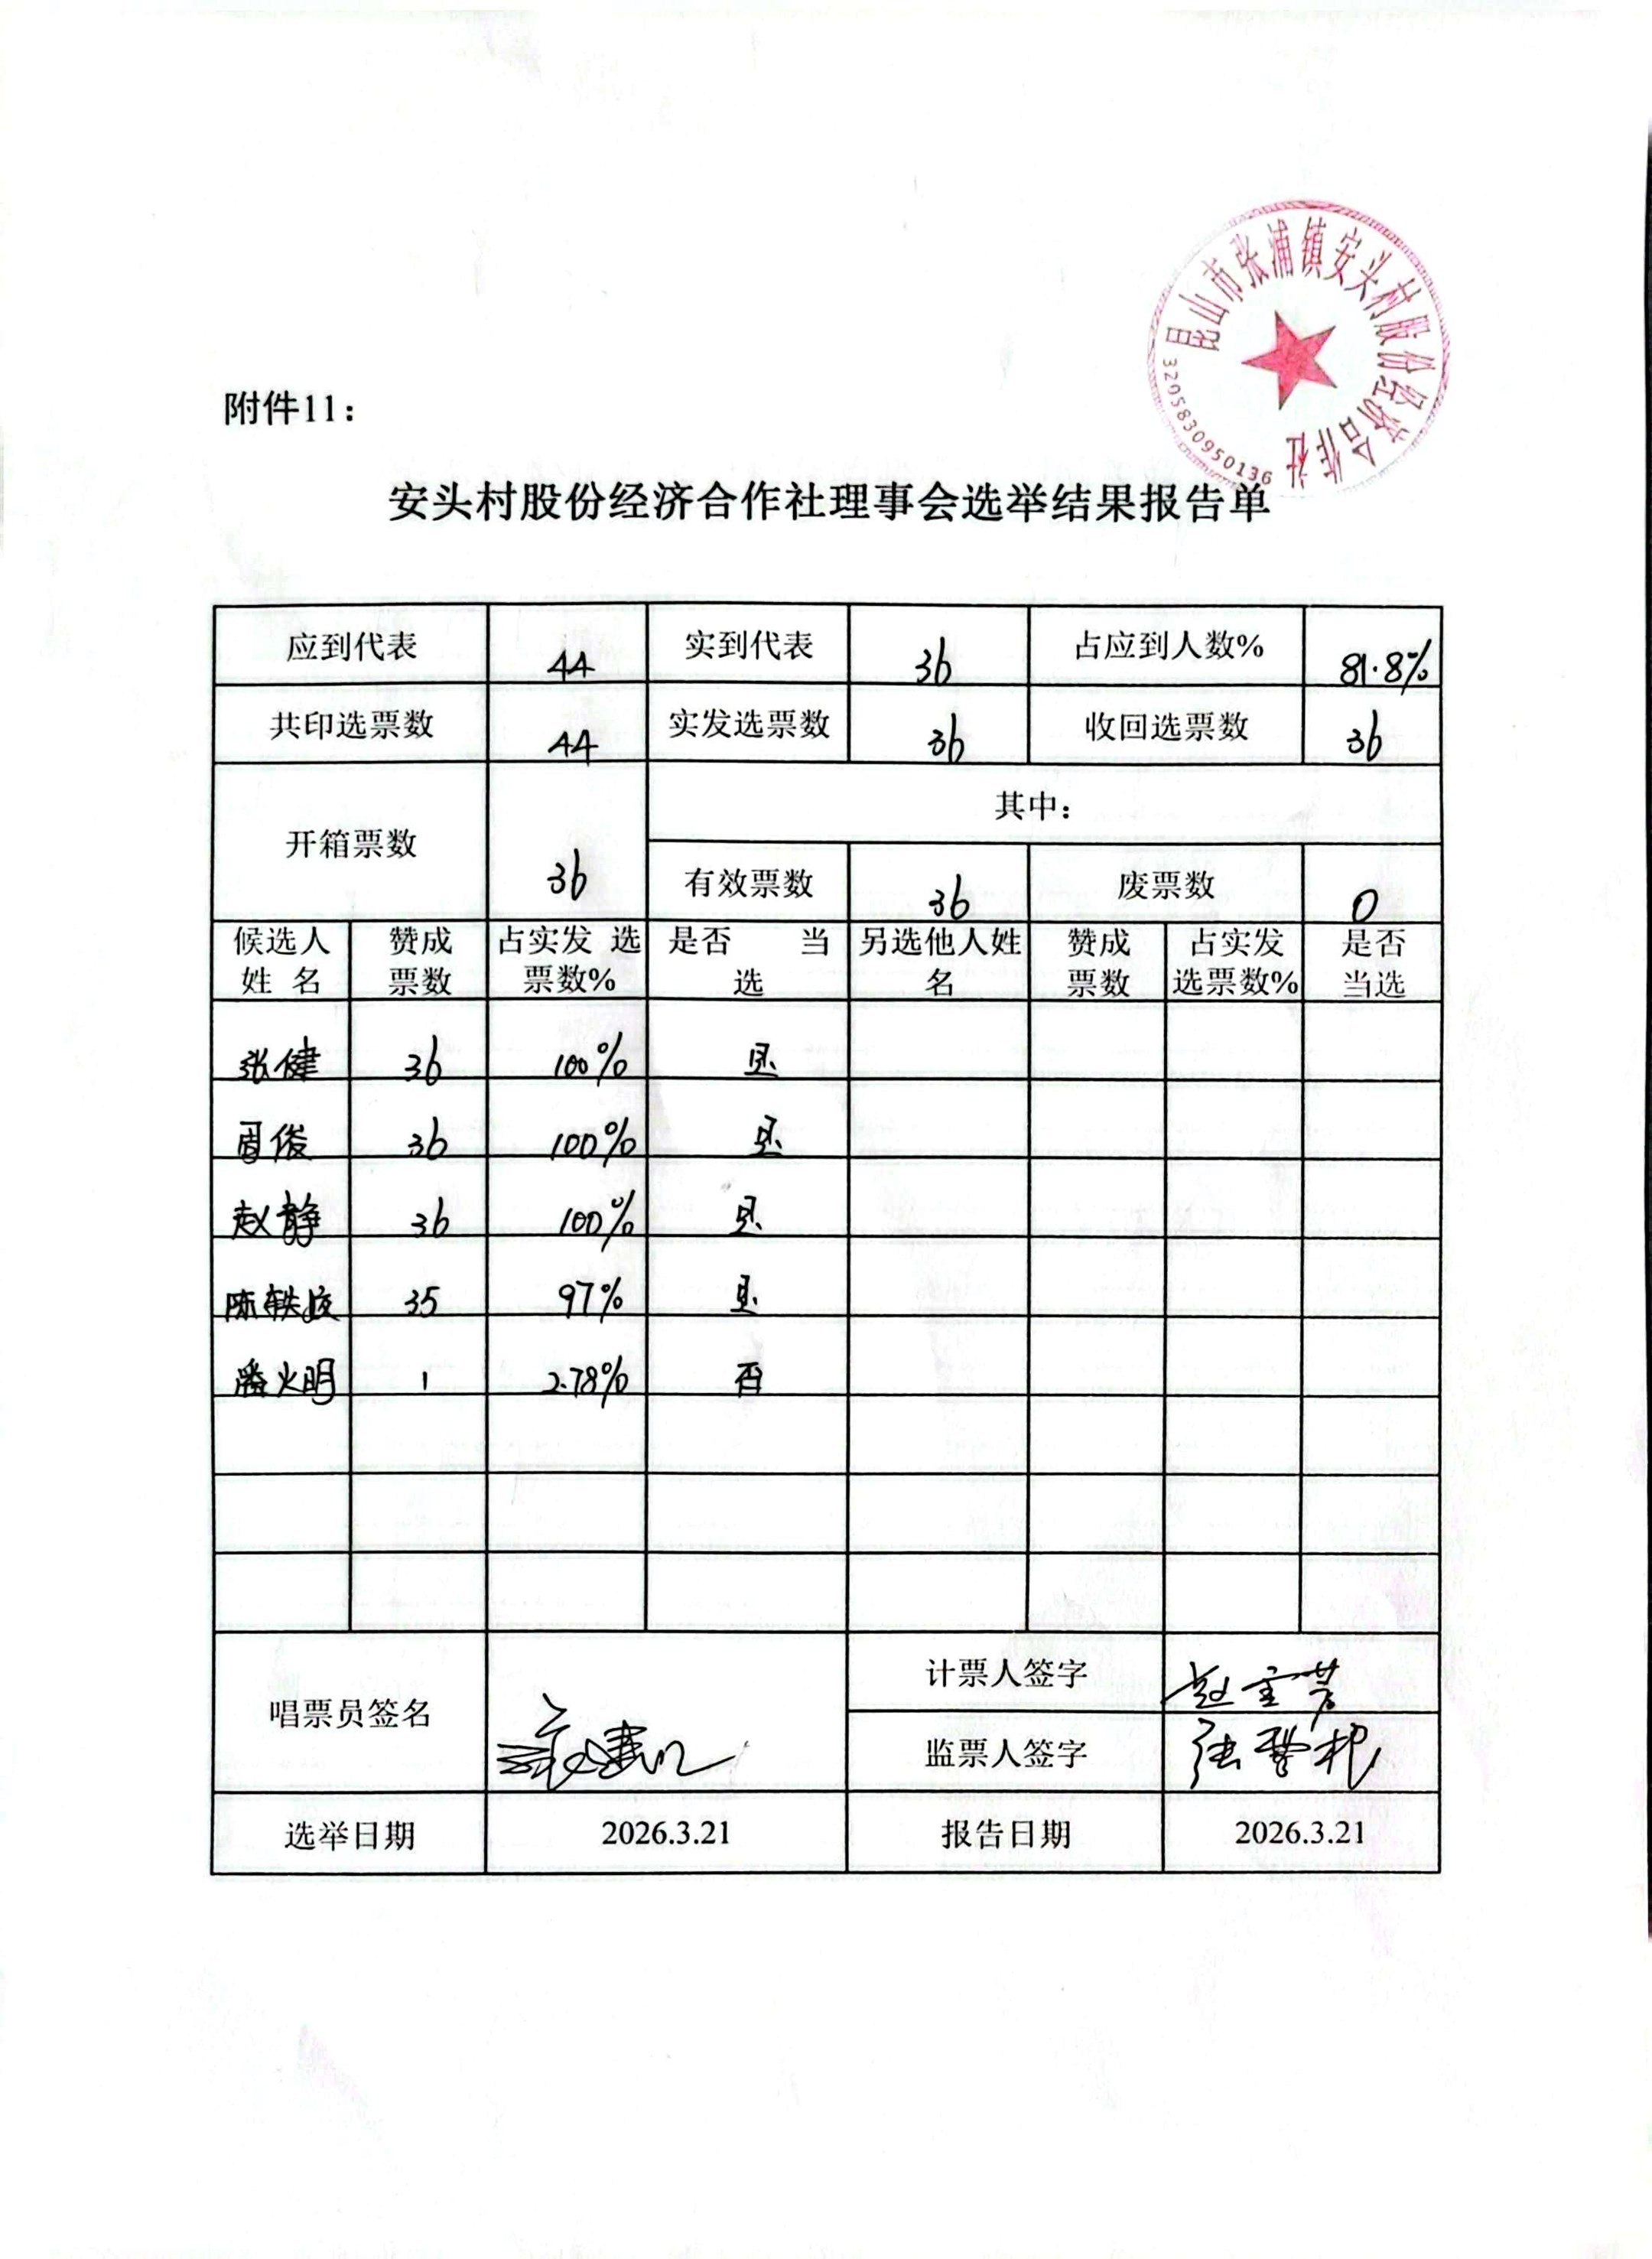 昆山市张浦镇安头村股份经济合作社
3205830950136
附件11：
安头村股份经济合作社理事会选举结果报告单
应到代表 44 实到代表 36 占应到人数% 81.8%
共印选票数 44 实发选票数 36 收回选票数 36
开箱票数 36 其中：
有效票数 36 废票数 0
候选人 赞成 占实发 选 是否 当 另选他人姓 赞成 占实发 是否
姓 名 票数 票数% 选 名 票数 选票数% 当选
张健 36 100% 是
周俊 36 100% 是
赵静 36 100% 是
陈轶 35 97% 是
火明 1 2.78% 否
计票人签字
唱票员签名
监票人签字
选举日期 2026.3.21 报告日期 2026.3.21